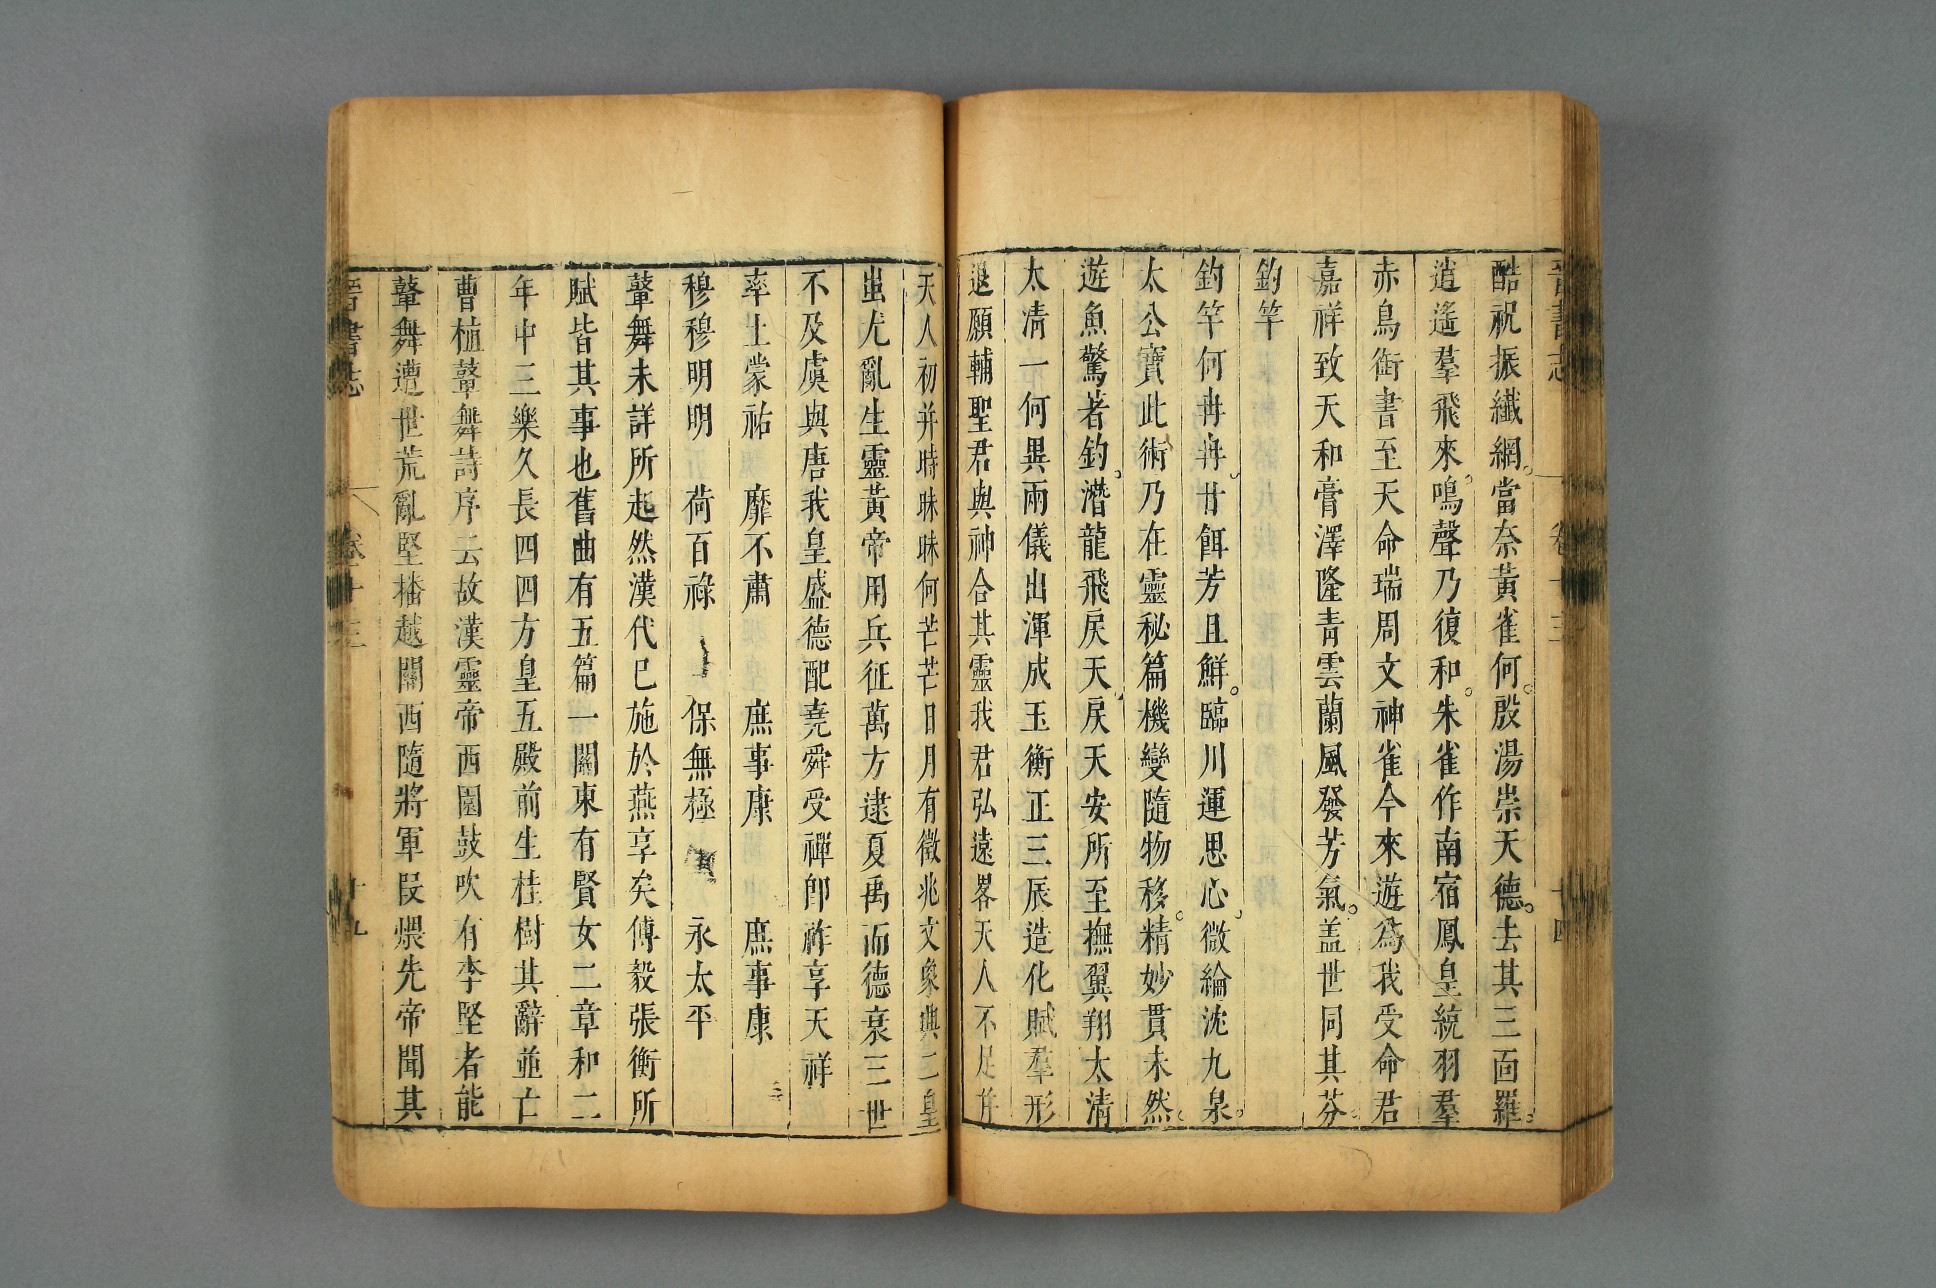 晉書志 卷十三 十四
酷祝振纖網。當奈黃雀何。殷湯崇天德。去其三面羅。
逍遙羣飛來。鳴聲乃復和。朱雀作南宿鳳皇統羽羣
赤烏銜書至天命瑞周文神雀今來遊爲我受命君
嘉祥致天和膏澤隆青雲蘭風發芳氣。盖世同其芬。
釣竿
釣竿何冉冉。甘餌芳且鮮。臨川運思心。微綸沈九泉。
太公寶此術乃在靈秘篇機變隨物移。精妙貫未然。
遊魚驚著釣。潛龍飛戾天。戾天安所至撫翼翔太清
太清一何異兩儀出渾成玉衡正三辰造化賦羣形
退願輔聖君與神合其靈我君弘遠畧天人不足并
天人初并時昧昧何芒芒日月有徵兆文象興二皇
蚩尤亂生靈黃帝用兵征萬方逮夏禹而德衰三世
不及虞與唐我皇盛德配堯舜受禪卽祚享天祥
率土蒙祐 靡不肅 庶事康 庶事康
穆穆明明 荷百祿 保無極 永太平
鼙舞未詳所起然漢代已施於燕享矣傅毅張衡所
賦皆其事也舊曲有五篇一關東有賢女二章和二
年中三樂久長四四方皇五殿前生桂樹其辭並亡
曹植鼙舞詩序云故漢靈帝西園鼓吹有李堅者能
鼙舞遭世荒亂堅播越關西隨將軍段煨先帝聞其
晉書志 卷十三 十九